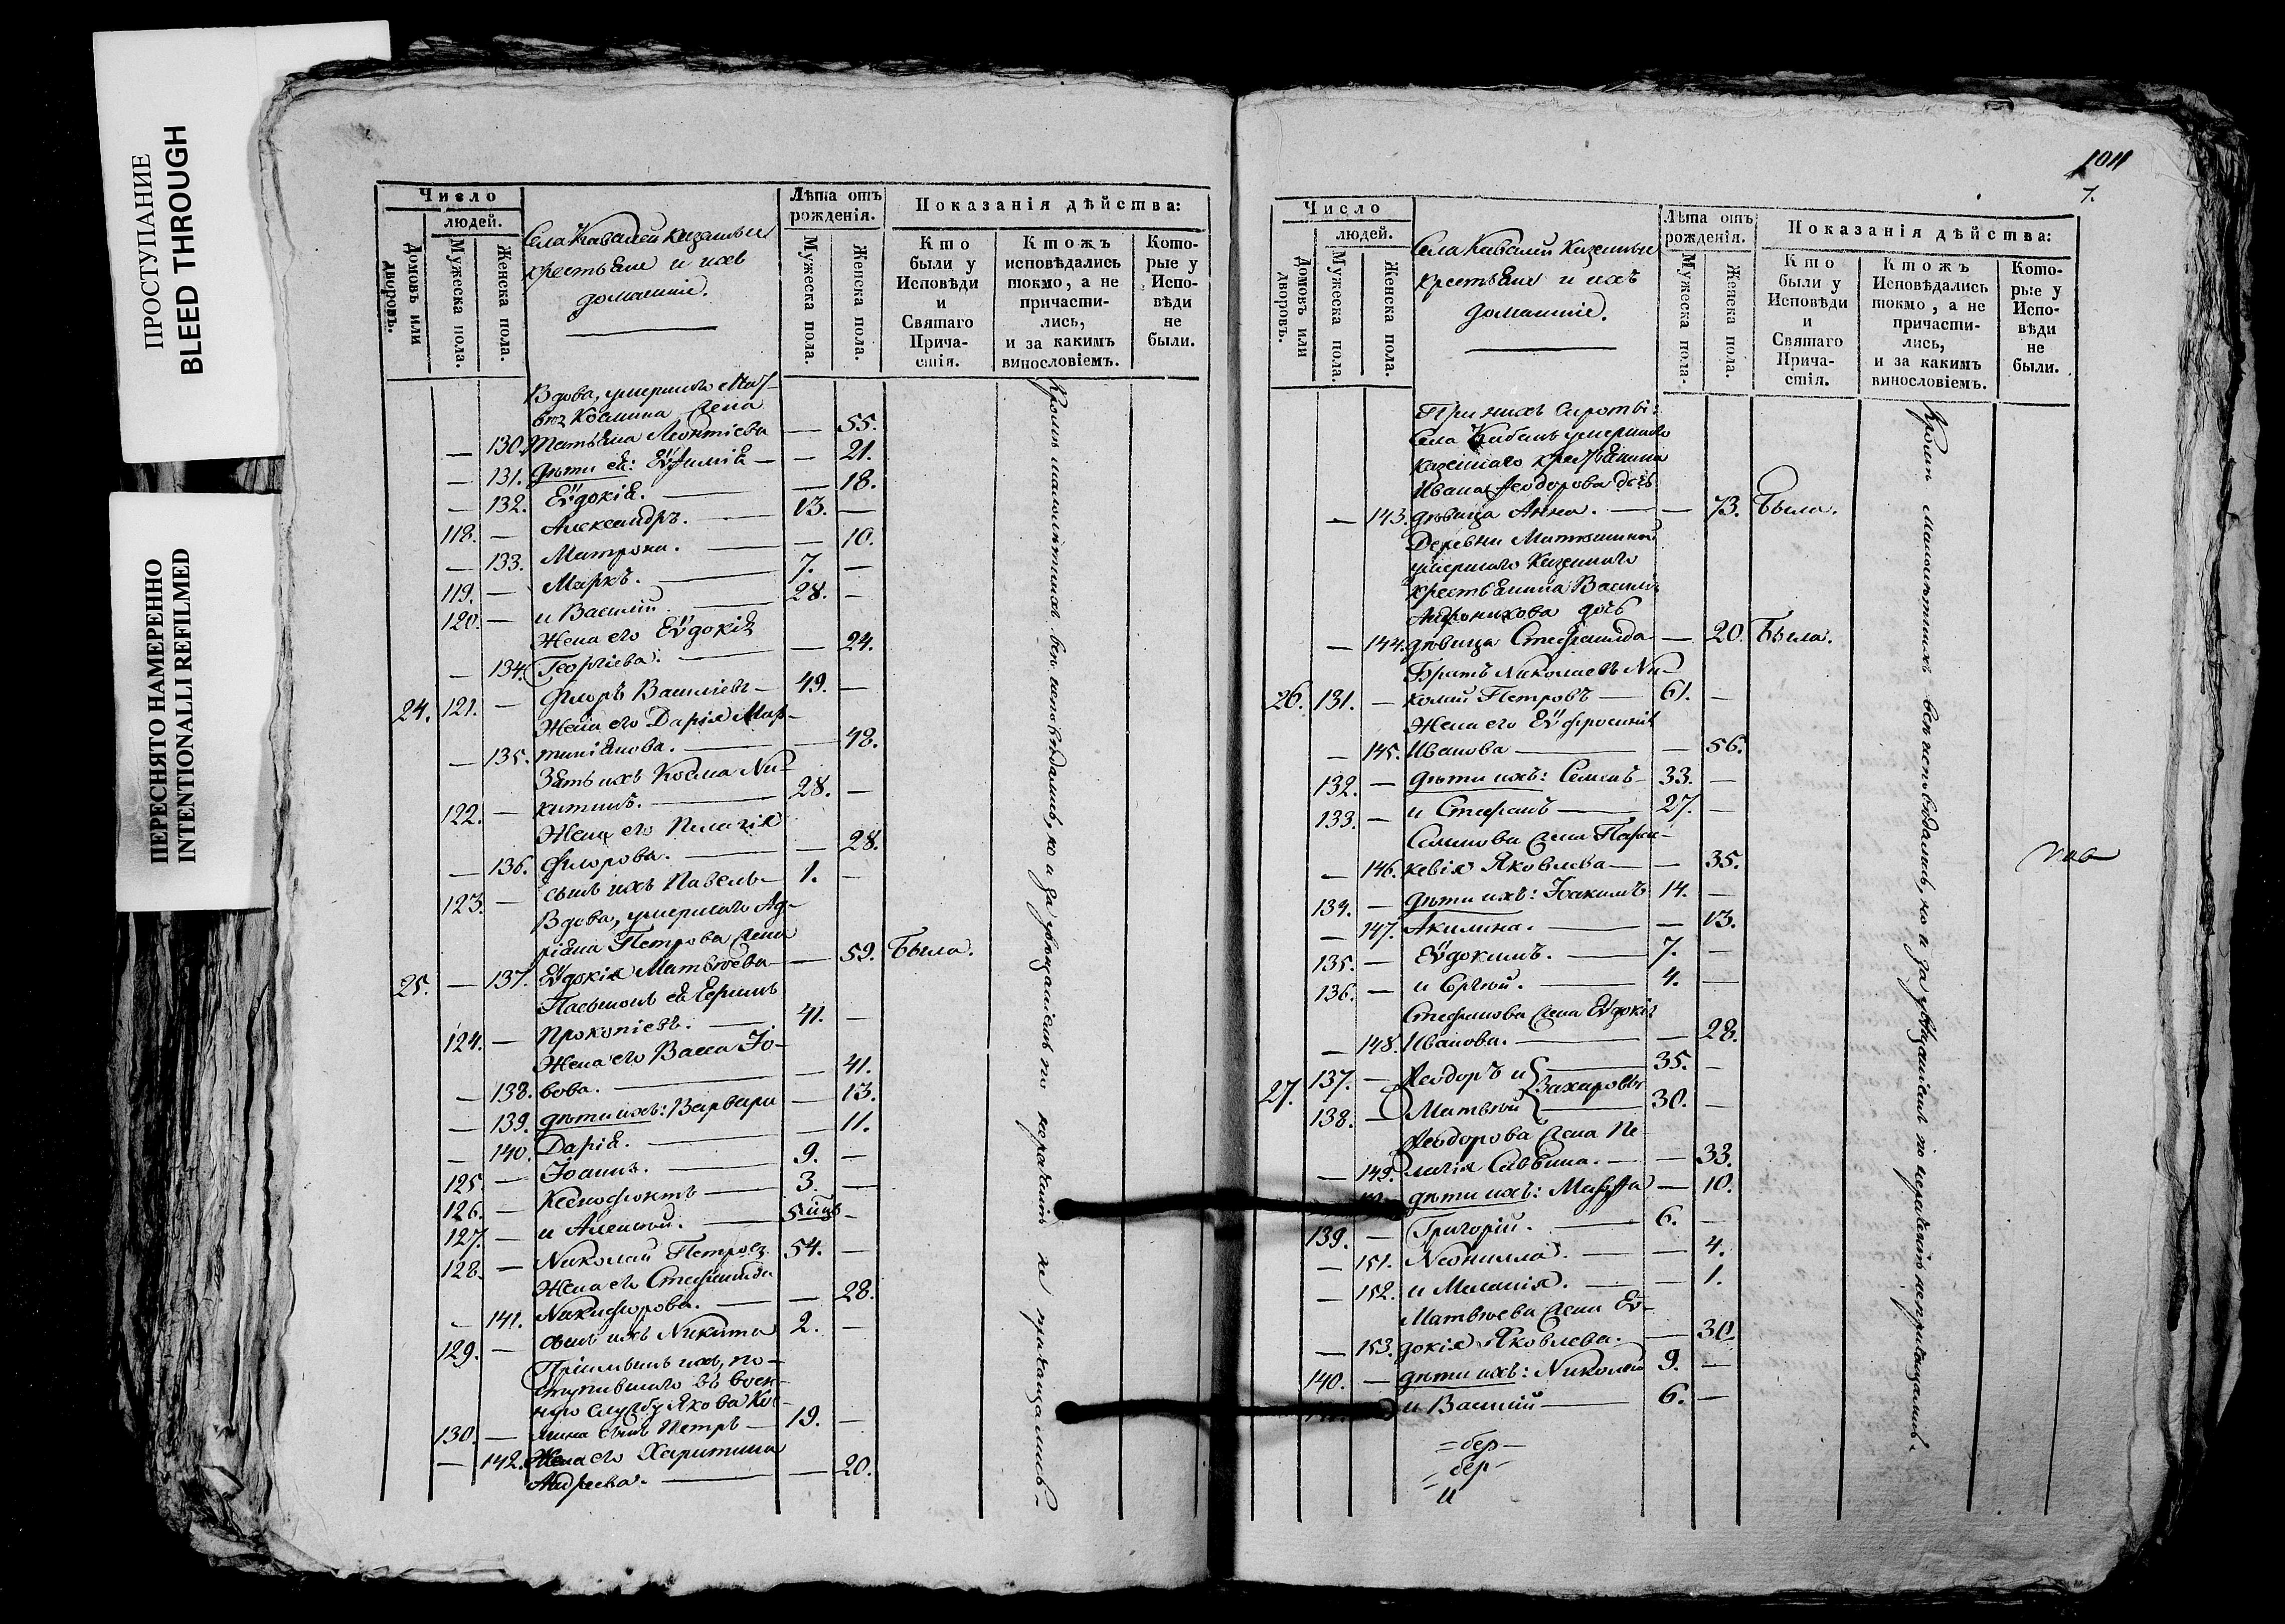 ПРОСТУПАНИЕ
BLEED THROUGH
ПЕРЕСНЯТО НАМЕРЕННО
INTENTIONALLI REFILMED
Число
людей.
Домовъ или дворовъ.
Мужеска пола.
Женска пола.
Села Кавалей Казенные
крестьяне и ихъ
домашніе.
Лѣта отъ рожденія.
Мужеска пола.
Женска пола.
Показанія дѣйства:
Кто были у Исповѣди и Святаго Прича-стія.
Ктожъ исповѣдались токмо, а не причасти-лись, и за какимъ винословіемъ.
Кото-рые у Испо-вѣди не были.
Вдова, умершаго Мат-
вѣя Космина жена
— 130. Татьяна Леонтіева — 55.
— 131. дѣти ея: Еѵфимія — — 21.
— 132. Еѵдокія. — — 18.
118. — Александръ. — 13. —
— 133. Матрона. — — 10.
119. — Маркъ. — 7. —
120. — и Василій. — 28. —
Жена его Еѵдокія
— 134. Георгіева. — — 24.
24. 121. — Флоръ Васильевъ — 49. —
Жена его Дарія Мар-
— 135. тиніанова. — — 48.
Зять ихъ Косма Ни-
122. — китинъ. — 28. —
Жена его Пелагія
— 136. Флорова. — — 28.
123. — сынъ ихъ Павелъ — 1. —
Вдова, умершаго Ад-
ріана Петрова жена
25. — 137. Еѵдокія Матвѣева — — 59. Была.
Пасынокъ ея Ефимъ
124. — Прокопіевъ. — 41. —
Жена его Васса Іо-
— 138. вова. — — 41.
— 139. дѣти ихъ: Варвара — 13.
— 140. Дарія. — — 11.
125. — Іоаннъ. — 9. —
126. — Ксенофонтъ — 3. —
127. — и Алексѣй. — 5 мцъ —
128. — Николай Петровъ 54. —
Жена его Стефанида
— 141. Никифорова. — — 28.
129. — сынъ ихъ Никита 2. —
Пріемышъ ихъ, по-
ступившаго въ воен-
ную службу Якова Кос-
130. — мина сынъ Петръ — 19. —
— 142. Жена его Харитина
Андреева. — — 20.
Кромѣ малолѣтнихъ все исповѣдались, но и за увѣщаніемъ по нераченію не причащались.
1011
7.
Число
людей.
Домовъ или дворовъ.
Мужеска пола.
Женска пола.
Села Кавалей Казенные
крестьяне и ихъ
домашніе.
Лѣта отъ рожденія.
Мужеска пола.
Женска пола.
Показанія дѣйства:
Кто были у Исповѣди и Святаго Прича-стія.
Ктожъ Исповѣдались токмо, а не причасти-лись, и за какимъ винословіемъ.
Кото-рые у Испо-вѣди не были.
При нихъ сироты:
Села умершаго
казеннаго крестьянина
Ивана Ѳеодорова дочь
— 143. дѣвица Анна. — — 73. Была.
Деревни
умершаго Казеннаго
крестьянина Василія
Андроникова дочь
— 144. дѣвица Стефанида — 20. Была.
Братъ Николаевъ Ни-
26. 131. — колай Петровъ — 61. —
Жена его Еѵфросинія
— 145. Иванова — — 56.
132. — дѣти ихъ: Семенъ — 33. —
133. — и Стефанъ — 27. —
Семенова жена Парас-
— 146. кевія Яковлева — — 35.
134. — дѣти ихъ: Іоакимъ 14. —
— 147. Акилина. — — 13.
135. — Еѵдокимъ. — 7. —
136. — и Сергѣй. — 4. —
Стефанова жена Еѵдокія
— 148. Иванова. — — 28.
27. 137. — Ѳеодоръ и — 35. —
Захаровы
138. — Матвѣй — 30. —
Ѳеодорова жена Пе-
— 149. лагія Саввина. — — 33.
дѣти ихъ: Марѳа — 10.
139. — Григорій. — 6. —
— 151. Неонилла. — — 4.
— 152. и Меланія. — — 1.
Матвѣева жена Еѵ-
— 153. докія Яковлева. — — 30.
140. — дѣти ихъ: Николай 9. —
и Василій — 6. —
Кромѣ малолѣтнихъ все исповѣдались, но и за увѣщаніемъ по нераченію не причащались.